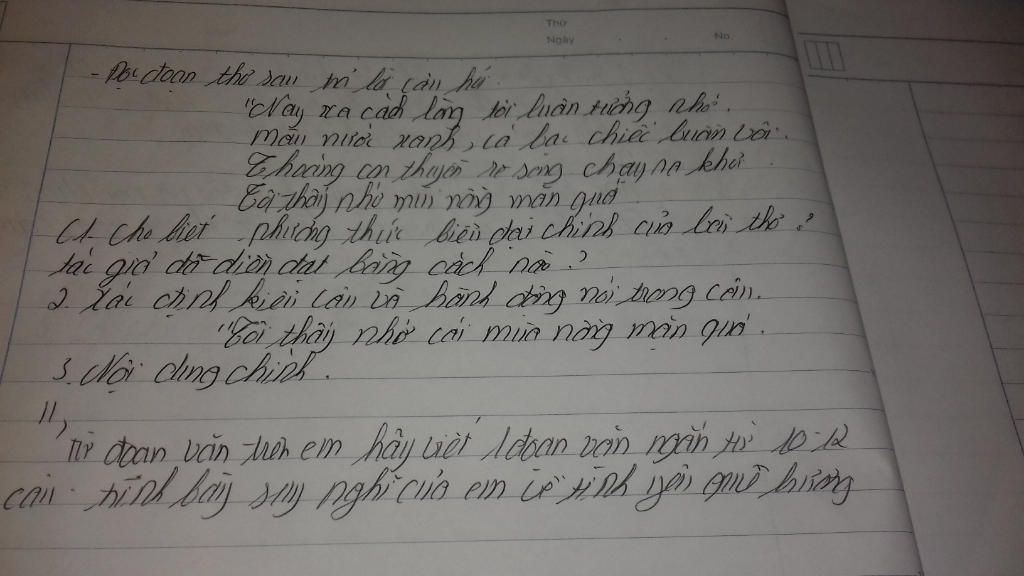 Thứ
Ngày . . No.
- Đọc đoạn thơ sau trả lời câu hỏi.
"Nay xa cách lòng tôi luôn tưởng nhớ.
Màu nước xanh, cá bạc chiếc buồm vôi.
Thoáng con thuyền rẽ sóng chạy ra khơi
Tôi thấy nhớ mùi nồng mặn quá"
C1. Cho biết phương thức biểu đạt chính của bài thơ?
tác giả đã diễn đạt bằng cách nào?
2. Xác định kiểu câu và hành động nói trong câu.
"Tôi thấy nhớ cái mùi nồng mặn quá.
3. Nội dung chính.
II,
Từ đoạn văn trên em hãy viết 1 đoạn văn ngắn từ 10-12
câu trình bày suy nghĩ của em về tình yêu quê hương